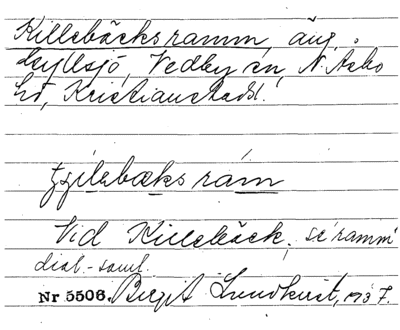 Killebäcksramm, äng,
Hyllsjö, Vedby sn, N. Åsbo
hd, Kristianstads l.
ʧilabæks ram
Vid Killebäck, se ramm
dial.-saml.
Nr 5506. Birgit Lundkvist, 1937.